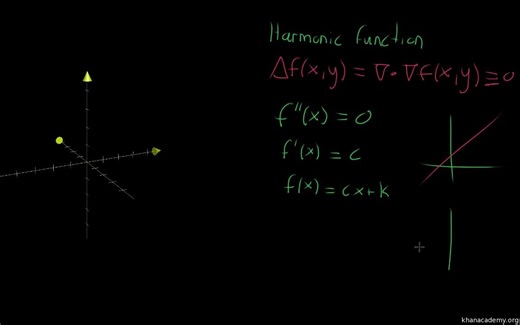 Harmonic function
Δf(x,y) = ∇·∇f(x,y) ≡ 0
f''(x) = 0
f'(x) = c
f(x) = cx+k
khanacademy.org